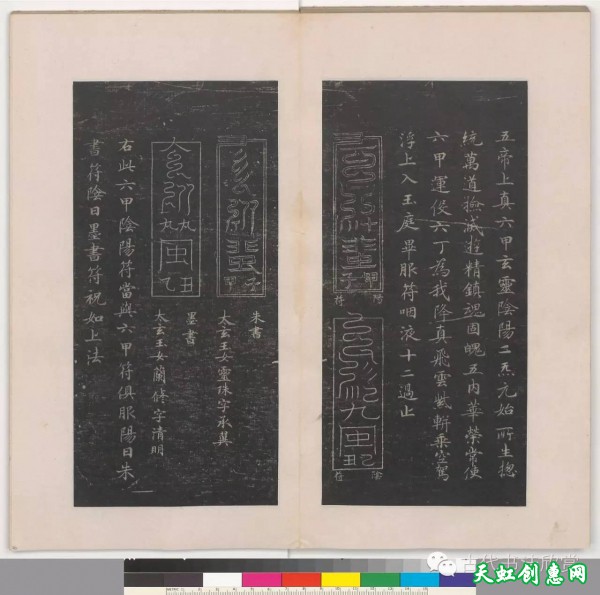 五帝上真六甲玄靈陰陽二炁元始所生揔
統萬道撿滅遊精鎮魂固魄五内華榮常使
六甲運役六丁為我降真飛雲紫軿乗空駕
浮上入玉庭畢服符咽液十二過止
陽符
陰符
朱書
太玄玉女靈珠字承翼
墨書
太玄玉女蘭修字清明
右此六甲陰陽符當與六甲符俱服陽日朱
書符陰日墨書符祝如上法
古代书法欣赏
天虹创惠网